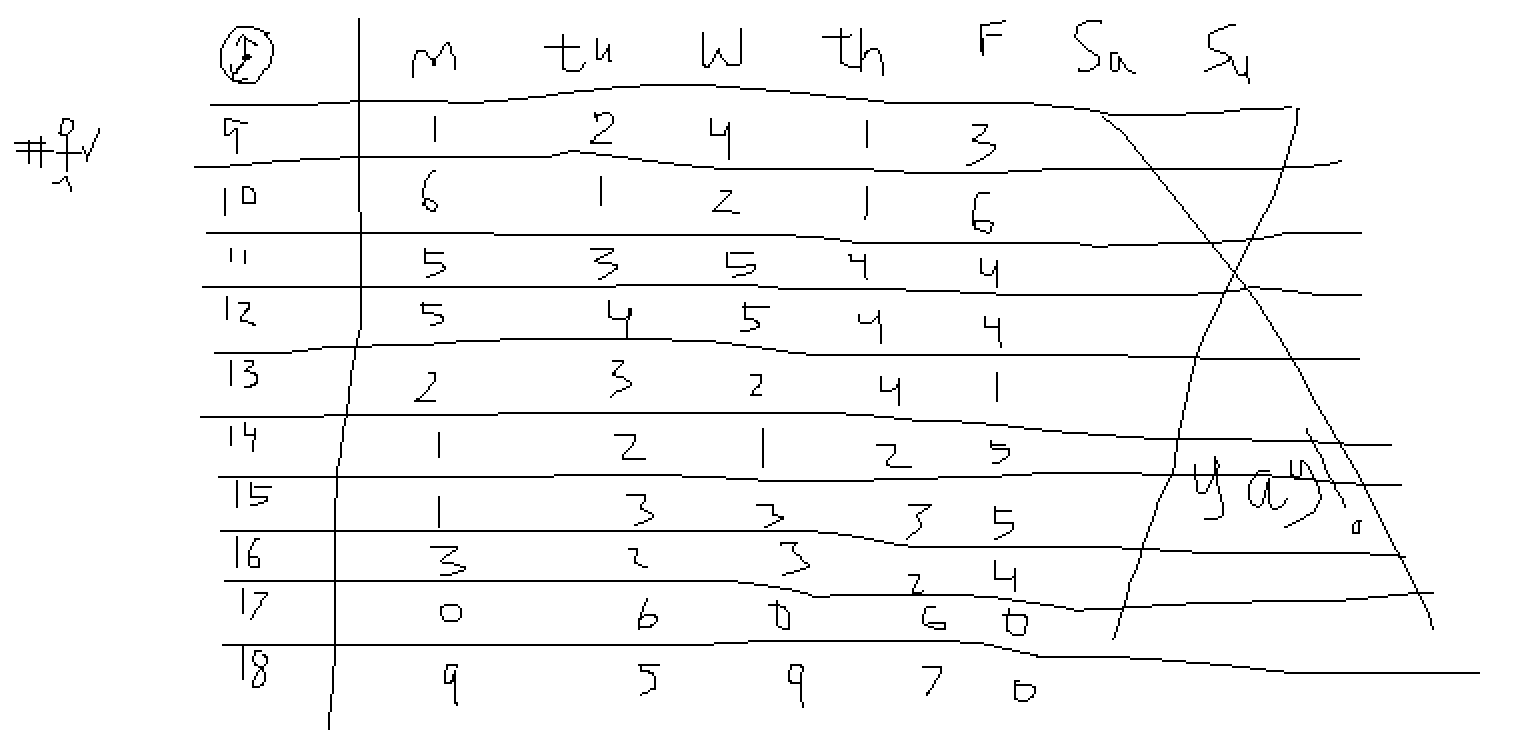 M tu W th F Sa Su
#
9 1 2 4 1 3
10 6 1 2 1 6
11 5 3 5 4 4
12 5 4 5 4 4
13 2 3 2 4 1
14 1 2 1 2 5
15 1 3 3 3 5
16 3 2 3 2 4
17 0 6 0 6 0
18 9 5 9 7 0
yay!